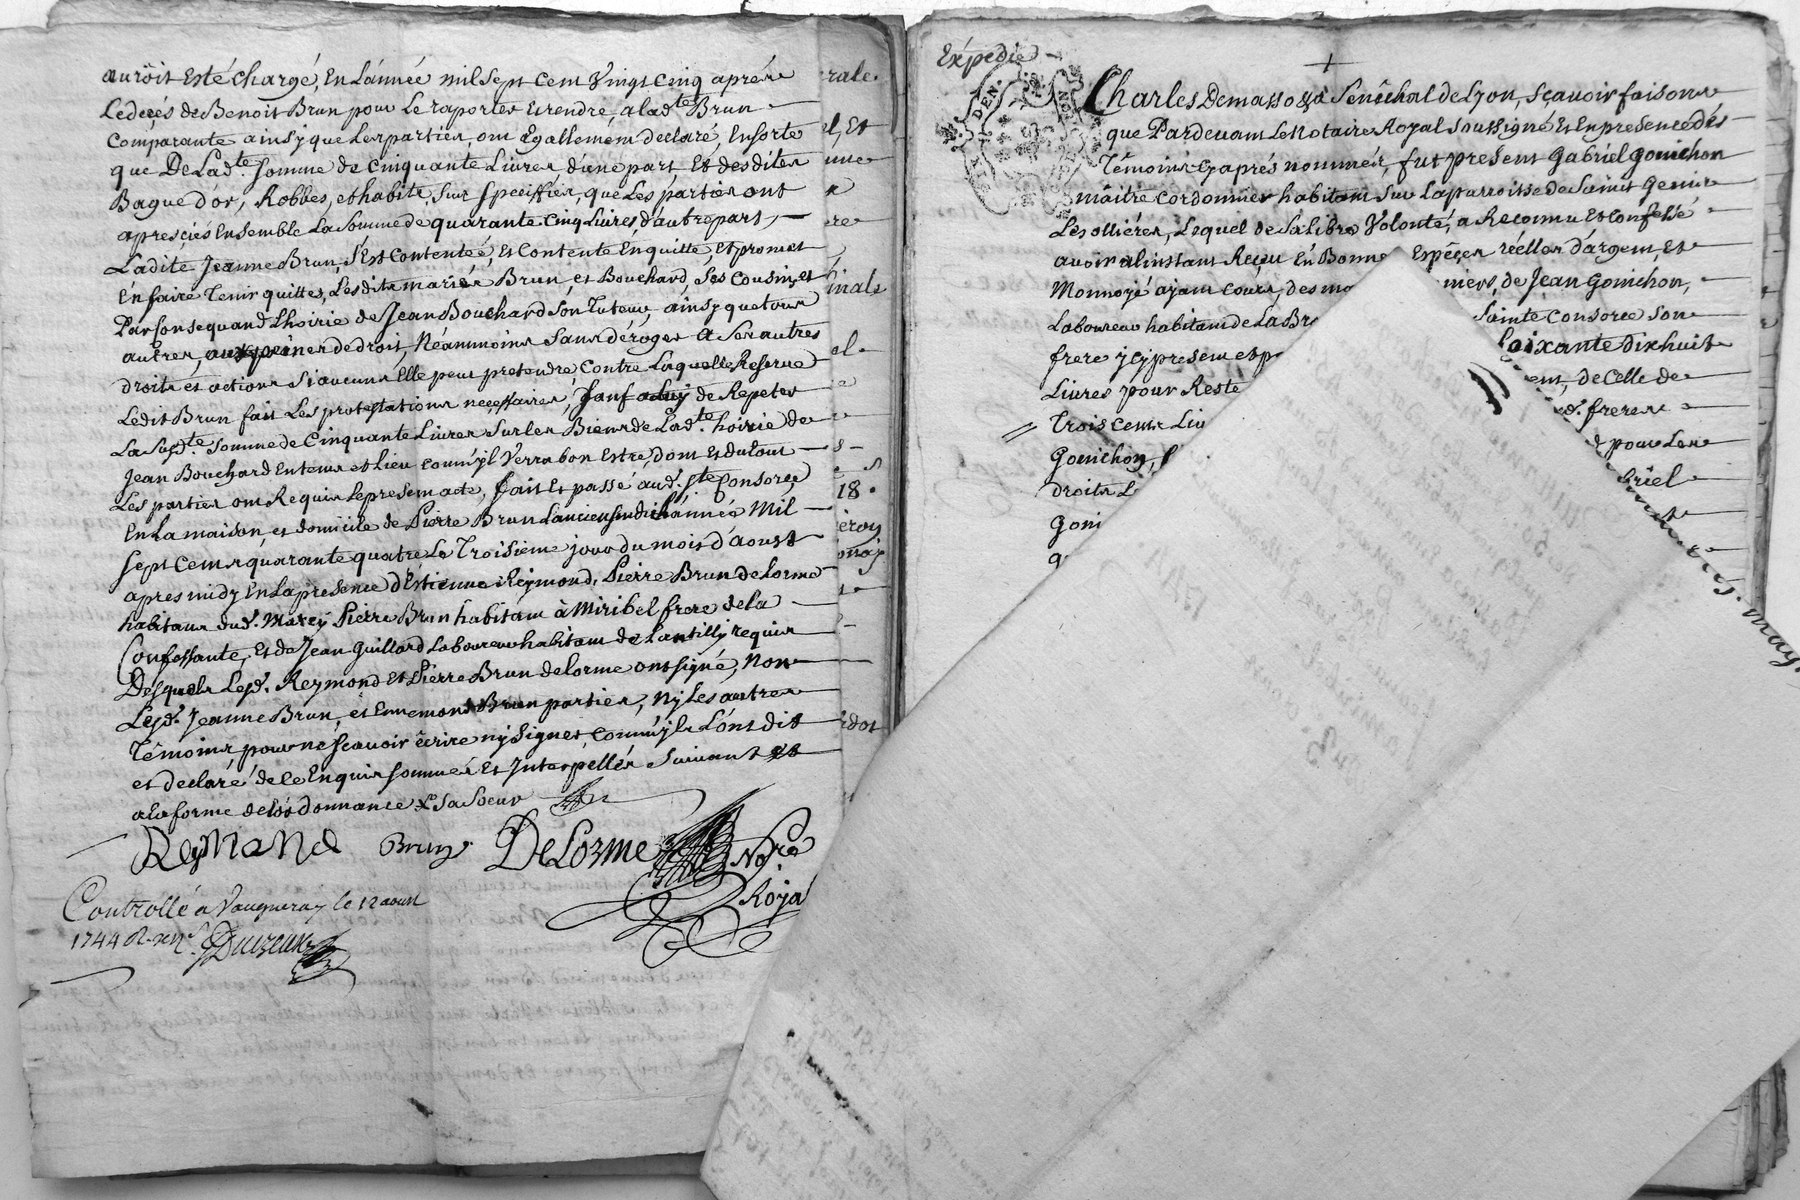 auroit Esté chargé, En L'année mil sept cent Vingt cinq aprér
Le deçés de Benoit Brun pour Le raporter Et rendre, a lad.te Brun
Comparante ainsy que Les partier, ont Egallement declaré, En sorte
que De Lad.te somme de Cinquante Livres d'une part Et desdites
Bague d'or, Robbes, et habits, Sur speciffiés, que Les parties ont
apresciés Ensemble La Somme de quarante cinq Livres, d'autre part,
Ladite Jeanne Brun, S'Est Contentée, Et Contente En quitte, Et promet
En faire Tenir quittes, Lesdits mariés Brun, et Bouchard, Ses Cousin, et
Par Consequand L'hoirie de Jean Bouchard Son Tuteur, ainsy que tous
autres, aux peines de droit, Néanmoins Sans déroger A Ses autres
droits et actions Si aucuns Elle peut pretendre, Contre Laquelle Reserve
Ledit Brun fait Les protestations necessaires, Sauf a Luy de Repeter
La Susd.te Somme de Cinquante Livres Sur Les Biens de Lad.te hoirie de
Jean Bouchard En tems et Lieu comm'yl Verra bon Estre, dont Et du tout
Les parties ont Requis Le present acte, fait Et passé aud. S.te Consorce
En La maison, et domicile de Pierre Brun L'ancien L'année Mil
sept Cents quarante quatre Le Troisieme jour du mois d'aoust
apres midy En La presence d'Estienne Reymond, Pierre Brun de Lorme
habitans dud. Marcy Pierre Brun habitant à Miribel frere de la
Confessante, Et de Jean Guillard Laboureur habitant de Lantilly requis
Desquels Lesd. Reymond Et Pierre Brun de Lorme ont signé, Non
Lesd. Jeanne Brun, et Ennemond Brun parties, Ny Les autres
Témoins pour ne Sçavoir Ecrire ny Signer, comm'yls L'ont dit
et declaré de ce Enquis sommés Et Interpellés Suivant
a la forme de L'ordonnance & Sa Soeur
Reymond Brun DeLorme No.re
Roya
Controllé a Vaugneray le 12 aoust
1744
rale.
l, Et
une
re
inals
el
18.
eroy
dot
Expedié
Charles Demasso Senéchal de Lyon, Sçavoir faisons
que Pardevant Le Notaire Royal Soussigné Et En presence dés
Témoins cy aprés nommés, fut present Gabriel Gonichon
màitre Cordonnier habitant Sur La parroisse de Saint Genis
Les ollières, Lequel de Sa libre Volonté, a Reconnu Et Confessé
avoir a l'instant Reçu En Bonne Espéçes réelles d'argent, Et
Monnoyé ayant cours, des ma niers, de Jean Gonichon,
Laboureur habitant de La Br Sainte Consorce Son
frere ycy present et p Soixante dix huit
Livres pour Reste ent, de Celle de
Trois Cents Liv ed. freres
Gonichon, pour Les
droits L briel
Goni
may.